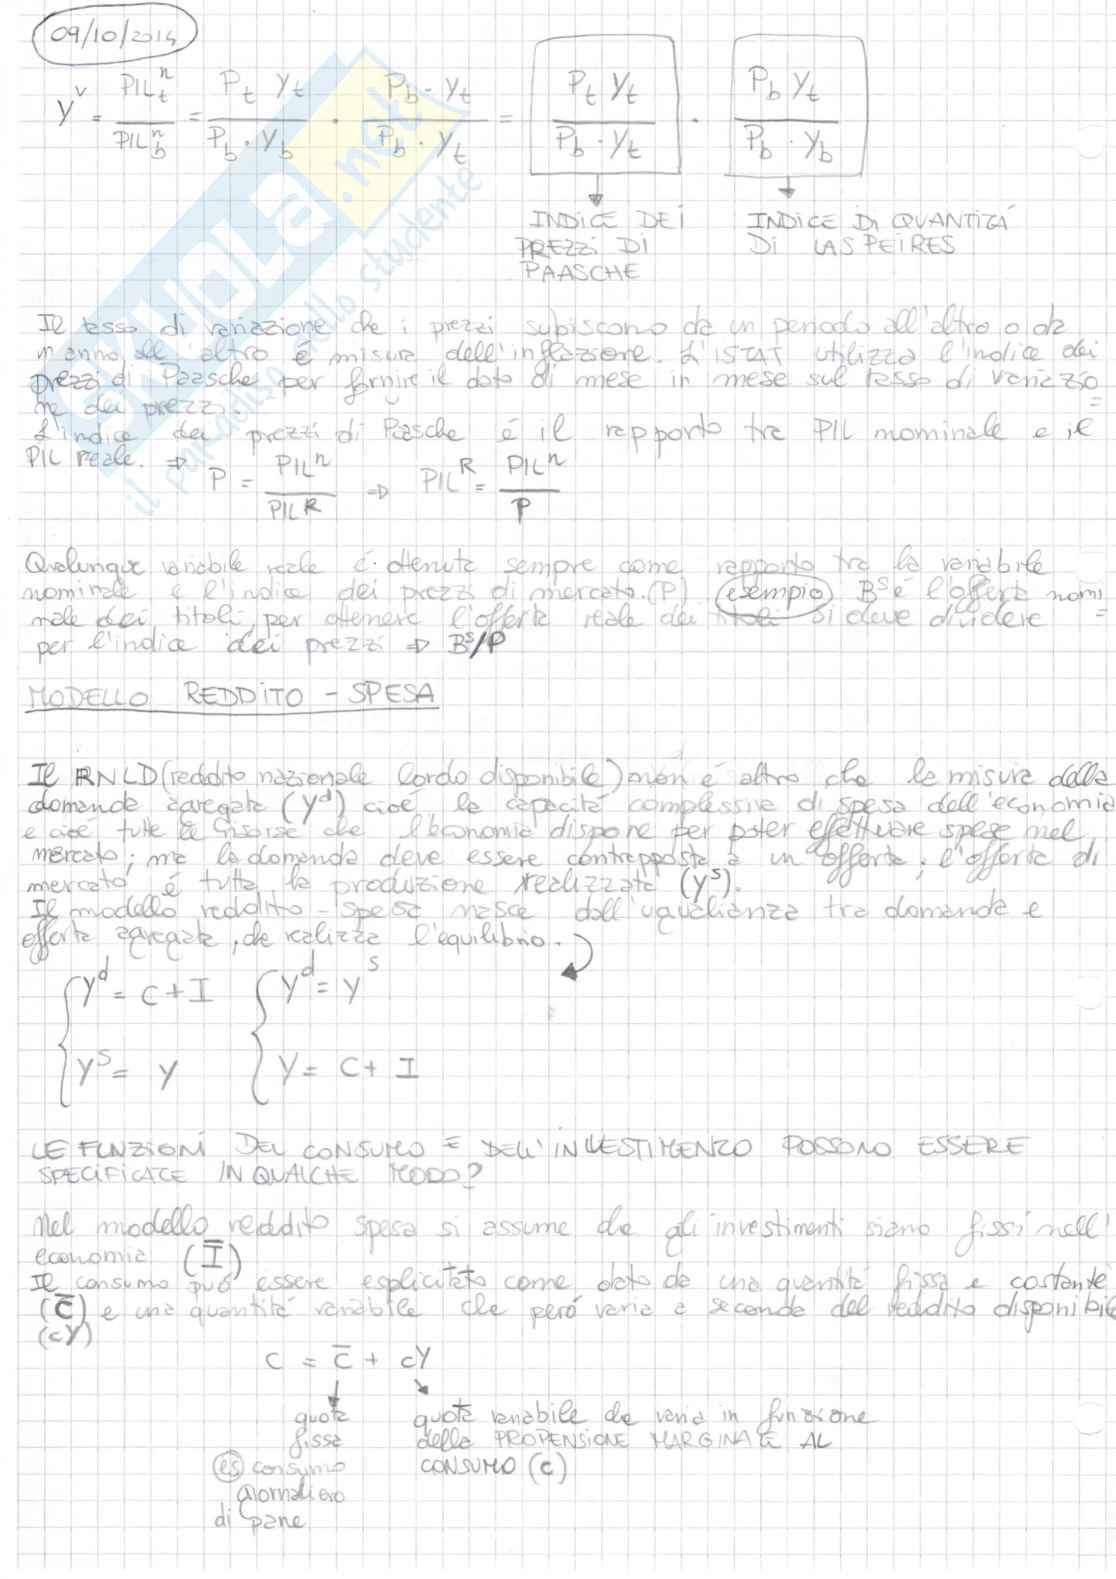 09/10/2014
Y^v = PIL_t^n / PIL_b^n = P_t Y_t / P_b · Y_b · P_b · Y_t / P_b · Y_t = P_t Y_t / P_b · Y_t · P_b Y_t / P_b · Y_b
INDICE DEI PREZZI DI PAASCHE
INDICE DI QUANTITÁ DI LASPEIRES
SKUOLA.net
il paradiso dello studente
Il tasso di variazione che i prezzi subiscono da un periodo all'altro o da
un anno all'altro é misura dell'inflazione. L'ISTAT utilizza l'indice dei
prezzi di Paasche per fornire il dato di mese in mese sul tasso di variazio=
ne dei prezzi.
L'indice dei prezzi di Pasche é il rapporto tra PIL nominale e il
PIL reale. ⇒ P = PIL^n / PIL^R ⇒ PIL^R = PIL^n / P
Qualunque variabile reale é ottenuta sempre come rapporto tra la variabile
nominale e l'indice dei prezzi di mercato. (P) esempio B^s é l'offerta nomi=
nale dei titoli, per ottenere l'offerta reale dei titoli si deve dividere
per l'indice dei prezzi ⇒ B^s/P
MODELLO REDDITO - SPESA
Il RNLD (reddito nazionale lordo disponibile) non é altro che la misura della
domanda agregata (Y^d) cioé la capacitá complessiva di spesa dell'economia
e cioé tutte le risorse che l'economia dispone per poter effettuare spese nel
mercato; ma la domanda deve essere contrapposta a un offerta; l'offerta di
mercato é tutta la produzione realizzata (Y^s).
Il modello reddito - spesa nasce dall'uguaglianza tra domanda e
offerta agregata, che realizza l'equilibrio.
Y^d = C + I
Y^s = Y
Y^d = Y^s
Y = C + I
LE FUNZIONI DEL CONSUMO E DELL'INVESTIMENTO POSSONO ESSERE
SPECIFICATE IN QUALCHE MODO?
Nel modello reddito spesa si assume che gli investimenti siano fissi nell'
economia (I̅)
Il consumo puó essere esplicitato come dato da una quantitá fissa e costante
(C̅) e una quantitá variabile che peró varia a seconda del reddito disponibile
(cY)
C = C̅ + cY
quota fissa
es consumo giornaliero di pane
quota variabile che varia in funzione
della PROPENSIONE MARGINALE AL
CONSUMO (c)